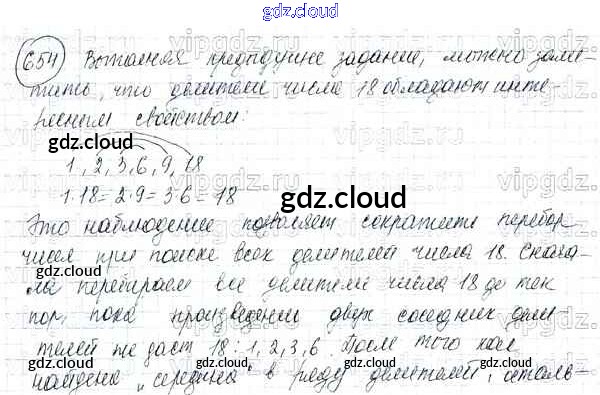 gdz.cloud
654 Выполняя предыдущие задание, можно заме-
тить, что делители числа 18 обладают инте-
ресным свойством:
gdz.cloud
1, 2, 3, 6, 9, 18
1·18 = 2·9 = 3·6 = 18
gdz.cloud
Это наблюдение позволяет сократить перебор
чисел при поиске всех делителей числа 18. Снача-
ла перебираем все делители числа 18 до тех
пор, пока произведение двух соседних дели-
телей не даст 18: 1, 2, 3, 6. После того как
найдена „середина" в ряду делителей, осталь-
gdz.cloud
gdz.cloud